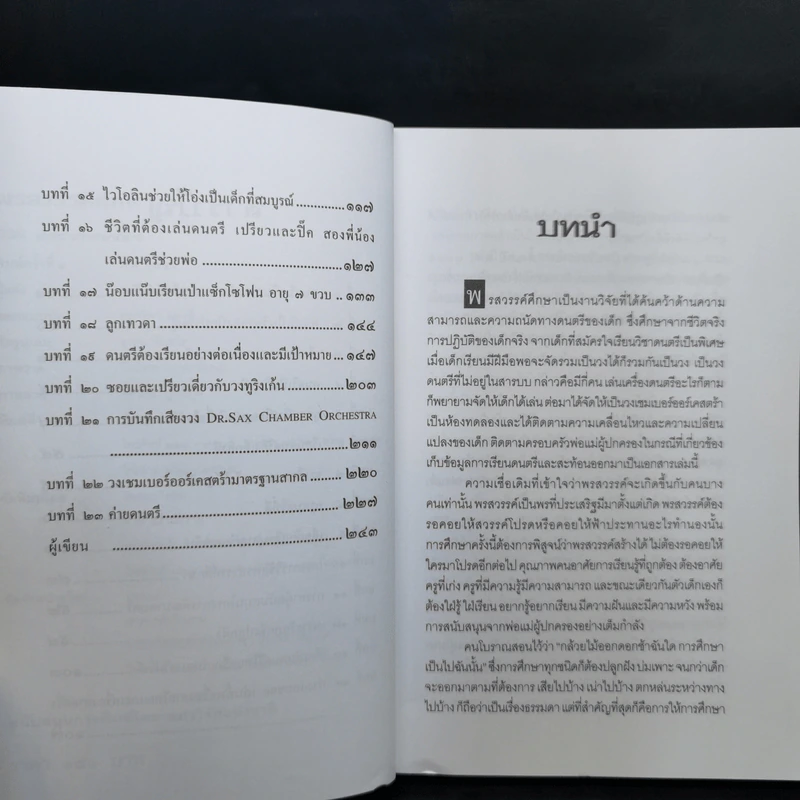 บทที่ ๑๕ ไวโอลินช่วยให้โอ่งเป็นเด็กที่สมบูรณ์..............๑๑๗
บทที่ ๑๖ ชีวิตที่ต้องเล่นดนตรี เปรียวและปิ๊ค สองพี่น้อง
เล่นดนตรีช่วยพ่อ..........................๑๒๗
บทที่ ๑๗ น๊อบแน๊บเรียนเป่าแซ็กโซโฟน อายุ ๗ ขวบ ..๑๓๓
บทที่ ๑๘ ลูกเทวดา ..........................๑๔๔
บทที่ ๑๙ ดนตรีต้องเรียนอย่างต่อเนื่องและมีเป้าหมาย...๑๔๗
บทที่ ๒๐ ซอยและเปรียวเดี่ยวกับวงทูริงเก้น.............๒๐๓
บทที่ ๒๑ การบันทึกเสียงวง DR.SAX CHAMBER ORCHESTRA
..........................๒๑๑
บทที่ ๒๒ วงเชมเบอร์ออร์เคสตร้ามาตรฐานสากล........๒๒๐
บทที่ ๒๓ ค่ายดนตรี..........................๒๒๗
ผู้เขียน ..........................๒๔๓
บทนำ
พรสวรรค์ศึกษาเป็นงานวิจัยที่ได้ค้นคว้าด้านความ
สามารถและความถนัดทางดนตรีของเด็ก ซึ่งศึกษาจากชีวิตจริง
การปฏิบัติของเด็กจริง จากเด็กที่สมัครใจเรียนวิชาดนตรีเป็นพิเศษ
เมื่อเด็กเรียนมีฝีมือพอจะจัดรวมเป็นวงได้ก็รวมกันเป็นวง เป็นวง
ดนตรีที่ไม่อยู่ในสารบบ กล่าวคือมีกี่คน เล่นเครื่องดนตรีอะไรก็ตาม
ก็พยายามจัดให้เด็กได้เล่น ต่อมาได้จัดให้เป็นวงเชมเบอร์ออร์เคสตร้า
เป็นห้องทดลองและได้ติดตามความเคลื่อนไหวและความเปลี่ยน
แปลงของเด็ก ติดตามครอบครัวพ่อแม่ผู้ปกครองในกรณีที่เกี่ยวข้อง
เก็บข้อมูลการเรียนดนตรีและสะท้อนออกมาเป็นเอกสารเล่มนี้
ความเชื่อเดิมที่เข้าใจว่าพรสวรรค์จะเกิดขึ้นกับคนบาง
คนเท่านั้น พรสวรรค์เป็นพรที่ประเสริฐมีมาตั้งแต่เกิด พรสวรรค์ต้อง
รอคอยให้สวรรค์โปรดหรือคอยให้ฟ้าประทานอะไรทำนองนั้น
การศึกษาครั้งนี้ต้องการพิสูจน์ว่าพรสวรรค์สร้างได้ ไม่ต้องรอคอยให้
ใครมาโปรดอีกต่อไป คุณภาพคนอาศัยการเรียนรู้ที่ถูกต้อง ต้องอาศัย
ครูที่เก่ง ครูที่มีความรู้มีความสามารถ และขณะเดียวกันตัวเด็กเองก็
ต้องใฝ่รู้ ใฝ่เรียน อยากรู้อยากเรียน มีความฝันและมีความหวัง พร้อม
การสนับสนุนจากพ่อแม่ผู้ปกครองอย่างเต็มกำลัง
คนโบราณสอนไว้ว่า "กล้วยไม้ออกดอกช้าฉันใด การศึกษา
เป็นไปฉันนั้น" ซึ่งการศึกษาทุกชนิดก็ต้องปลูกฝัง บ่มเพาะ จนกว่าเด็ก
จะออกมาตามที่ต้องการ เสียไปบ้าง เน่าไปบ้าง ตกหล่นระหว่างทาง
ไปบ้าง ก็ถือว่าเป็นเรื่องธรรมดา แต่ที่สำคัญที่สุดก็คือการให้การศึกษา